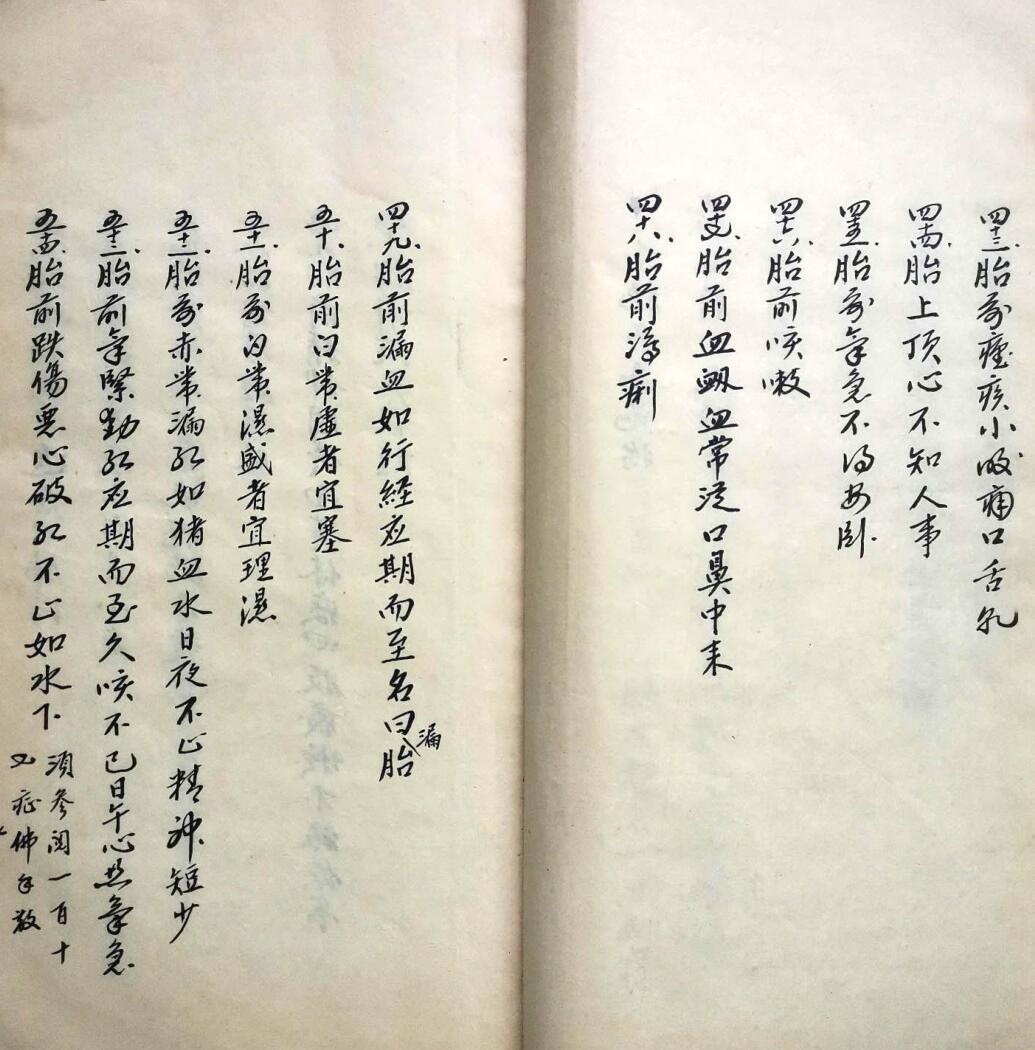 四十三、胎前痘疾小腹痛口舌乳
四十四、胎上顶心不知人事
四十五、胎前氣急不得安卧
四十六、胎前咳嗽
四十七、胎前血衂血常從口鼻中来
四十八、胎前瀉痢
四十九、胎前漏血如行經应期而至名曰漏胎
五十、胎前白带虛者宜塞
五十一、胎前白带濕盛者宜理濕
五十二、胎前赤带漏红如猪血水日夜不止精神短少
五十三、胎前氣緊動红应期而至久咳不已日午心热氣急
五十四、胎前跌傷惡心破红不止如水下 須參閱一百十
又症佛手散